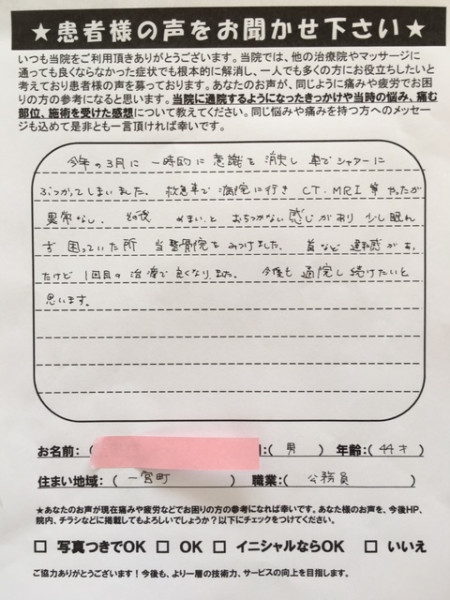 ★患者様の声をお聞かせ下さい★
いつも当院をご利用頂きありがとうございます。当院では、他の治療院やマッサージに
通っても良くならなかった症状でも根本的に解消し、一人でも多くの方にお役立ちしたいと
考えており患者様の声を募っております。あなたのお声が、同じように痛みや疲労でお困
りの方の参考になると思います。当院に通院するようになったきっかけや当時の悩み、痛む
部位、施術を受けた感想について教えてください。同じ悩みや痛みを持つ方へのメッセー
ジも込めて是非とも一言頂ければ幸いです。
今年の3月に 一時的に 意識を 消失し 車で
ぶつかってしまいました。救急車で 病院に行き CT、MRI 等 やったが
異常なし、その後 めまいと おちつかない 感じがあり 少し眠れ
ず 困っていた所 当整骨院を みつけました。首など 違和感があっ
たけど 1回目の 治療で 良くなりました。今後も 通院し続けたいと
思います。
お名前：( :( 男 ) 年齢：( 44才 )
住まい地域：( 一宮町 ) 職業：( 公務員 )
★あなたのお声が現在痛みや疲労などでお困りの方の参考になれば幸いです。あなた様のお声を、今後HP、
院内、チラシなどに掲載してもよろしいでしょうか？以下にチェックをつけてください。
□ 写真つきでOK □ OK □ イニシャルならOK □ いいえ
ご協力ありがとうございます！今後も、より一層の技術力、サービスの向上を目指します。